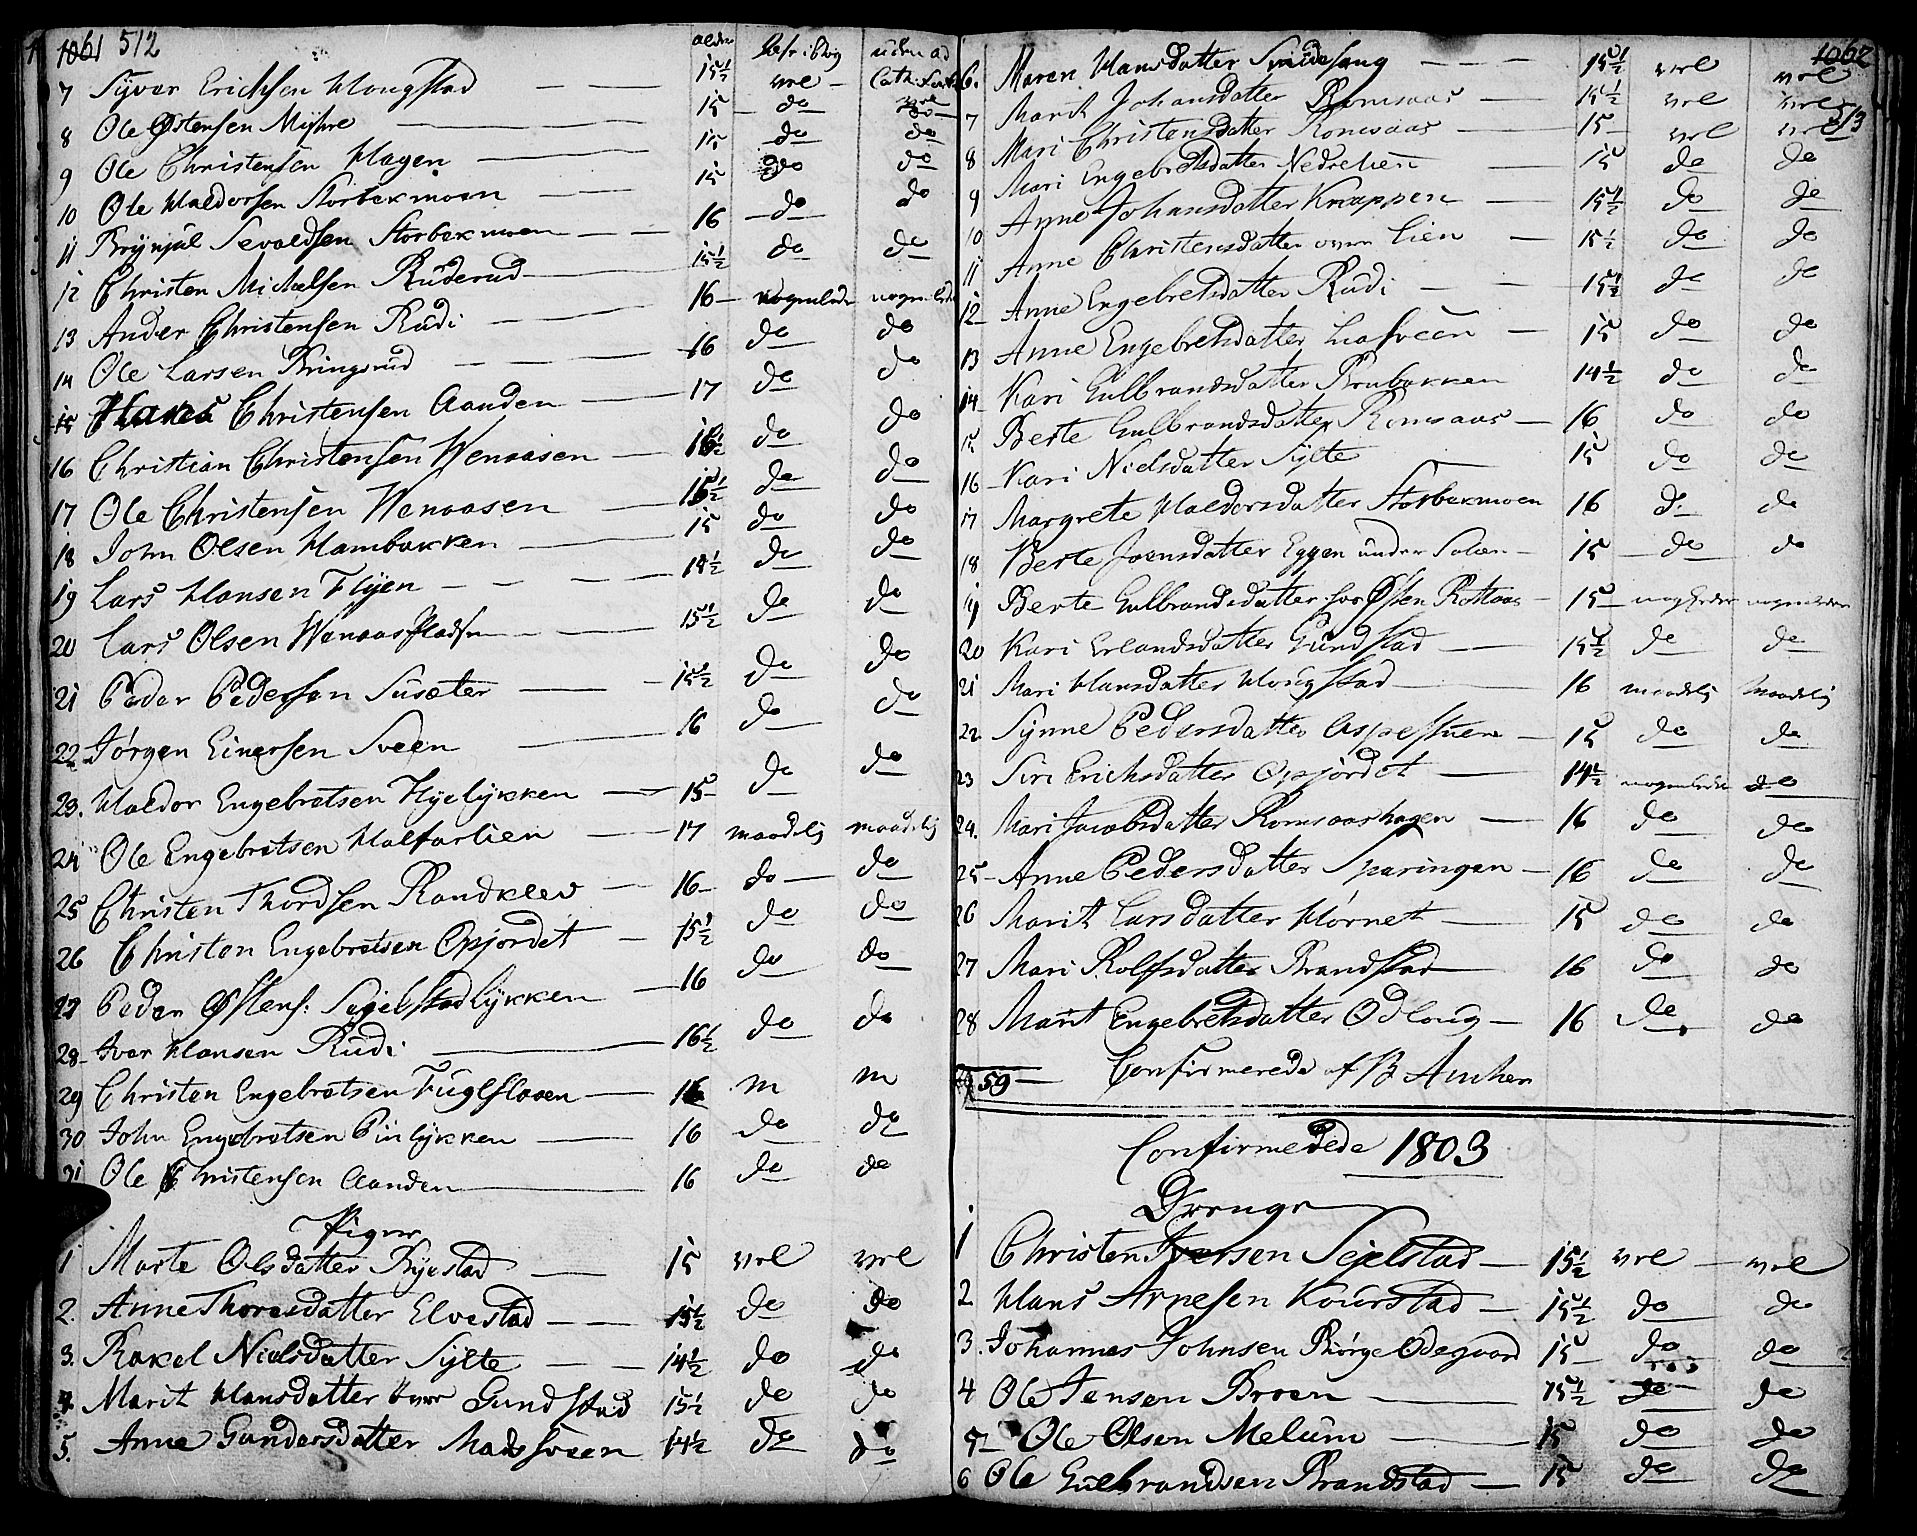 1061 512
alder befribbog uden ad
7 Syver Erichsen Kongstad 15½ vel Cath:
8 Ole Østensen Myhre 15 do do
9 Ole Christensen Hagen 15 do do
10 Ole Haldorsen Storbekmoen 15 do do
11 Brynjul Sevaldsen Storbekmoen 16 do do
12 Christen Michelsen Ruderud 15½ do do
13 Ander Christensen Rudi 16 nogenlede nogenlede
14 Ole Larsen Bringsrud 16 do do
15 Hans Christensen Aanden 17 do do
16 Christian Christensen Wenaasen 16½ do do
17 Ole Christensen Wenaasen 15½ do do
18 John Olsen Hambakken 15 do do
19 Lars Hansen Flyen 14½ do do
20 Lars Olsen Wenaaspladsen 15½ do do
21 Peder Pedersen Susæter 15½ do do
22 Jørgen Einersen Sveen 16 do do
23. Haldor Engebretsen Flyelykken 15 do do
24 Ole Engebretsen Halfarlien 17 maadelig maadelig
25 Christen Thordsen Randklev 16 do do
26 Christen Engebretsen Opjordet 15½ do do
27 Peder Østens: Segelstadlykken 16 do do
28 Iver Hansen Rudi 16½ do do
29 Christen Engebretsen Fuglslaaen 16 m m
30 John Engebretsen Piulykken 16 do do
31 Ole Christensen Aanden 16 do do
Piger
1 Marte Olsdatter Byestad 15 vel vel
2. Anne Thoresdatter Elvestad 15½ do do
3. Rakel Nielsdatter Sylte 14½ do do
4 Marit Hansdatter over Gundstad 15½ do do
5. Anne Gundersdatter Madssveen 14½ do do
1062
513
6. Maren Hansdatter Sundesang 15½ vel vel
7 Marit Johansdatter Romsaas 15½ vel vel
8 Mari Christensdatter Romsaas 15 vel vel
9 Mari Engebretsdatter Nedrelien 15 do do
10 Anne Johansdatter Knappen 15½ do do
11 Anne Christensdatter over Lien 15½ do do
12 Anne Engebretsdatter Rudi 15½ do do
13 Anne Engebretsdatter Losveen 15 do do
14 Kari Gulbrandsdatter Brubakken 14½ do do
15 Berte Gulbrandsdatter Romsaas 16 do do
16 Kari Nielsdatter Sylte 15 do do
17 Margrete Haldorsdatter Storbekmoen 16 do do
18 Berte Joensdatter Eggen under Solien 15 do do
19 Berte Gulbrandsdatter hos Østen Rottaas 15 nogleder nogenleder
20 Kari Erlandsdatter Gundstad 15½ do do
21 Mari Hansdatter Kongstad 16 maadelig maadelig
22 Synne Pedersdatter Aspestuen 15 do do
23 Siri Erichsdatter Opjordet 14½ nogenleder do
24. Mari Jacobsdatter Romsaashagen 16 do do
25 Anne Pedersdatter Sparingen 16 do do
26 Marit Larsdatter Hornet 15 do do
27 Mari Rolfsdatter Brandstad 16 do do
28 Marit Engebretsdatter Odloug 16 do do
59 Confirmerede af B Ancher
Confirmerede 1803
Drenge
1 Christen Iversen Sejelstad 15½ vel vel
2 Hans Arnesen Kourstad 15½ do do
3. Johannes Johnsen Børge Ødegaard 15 do do
4 Ole Jensen Broen 15½ do do
5 Ole Olsen Melum 15 do do
6 Ole Gulbrandsen Brandstad 15 do do